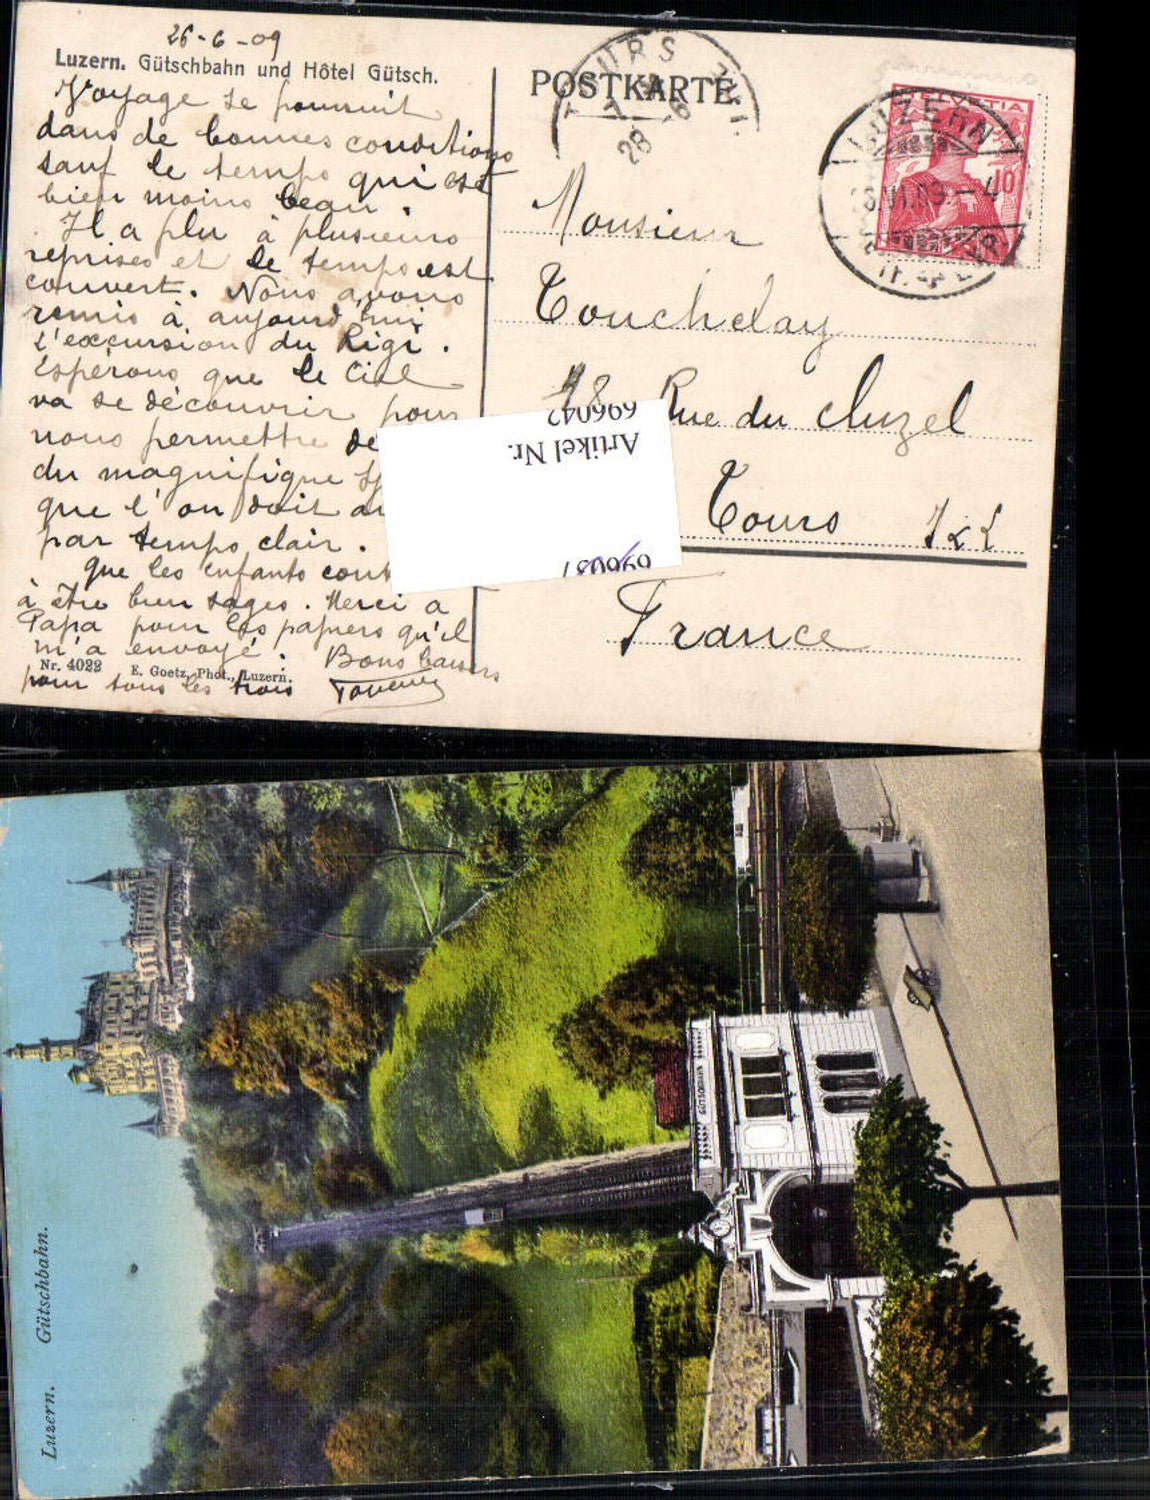 26-6-09
Luzern. Gütschbahn und Hôtel Gütsch.
Voyage se poursuit
dans de bonnes conditions
sauf le temps qui est
bien moins beau.
Il a plu à plusieurs
reprises et le temps est
couvert. Nous avons
remis à aujourd'hui
l'excursion du Rigi.
Espérons que le Ciel
va se découvrir pour
nous permettre de
du magnifique
que l'on doit
par temps clair.
Que les enfants cont
à être bien sages. Merci à
Papa pour les papiers qu'il
m'a envoyé. Bons baisers
Nr. 4022 E. Goetz, Phot., Luzern.
pour tous les trois
POSTKARTE
TOURS
28 -6
HELVETIA
10
LUZERN
VI.09.-4
Monsieur
Touchelay
48 Rue du Cluzel
Tours I&L
France
Artikel Nr.
696042
696037
Luzern. Gütschbahn.
GÜTSCHBAHN